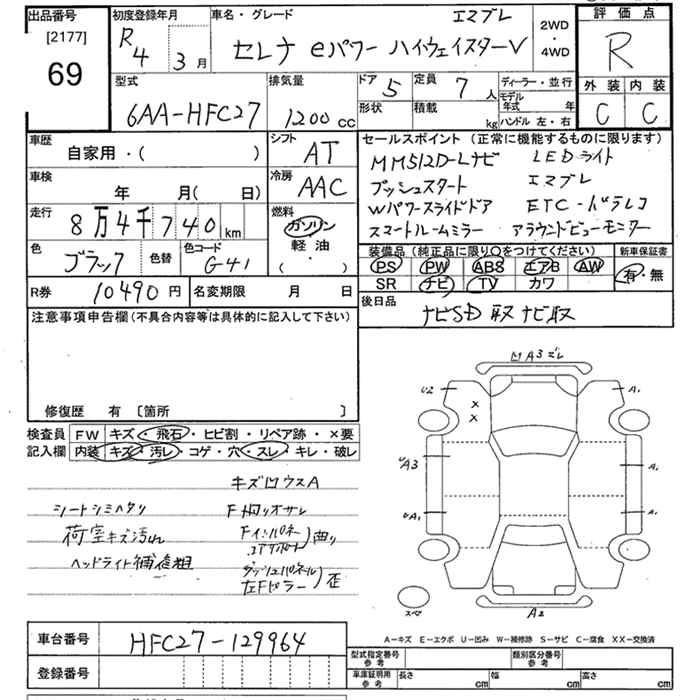 出品番号 初度登録年月 車名・グレード エマブレ 2WD・4WD 評価点
[2177] R4 3月 セレナ eパワー ハイウェイスターV R
69
型式 排気量 ドア 5 定員 7人 ディーラー・並行 外装 内装
6AA-HFC27 1200cc 形状 積載 kg モデル年式 年 C C
ハンドル 左・右
車歴 シフト セールスポイント (正常に機能するものに限ります)
自家用・( ) AT MM512D-Lナビ LEDライト
車検 年 月( 日) 冷房 AAC プッシュスタート エマブレ
走行 8万4千740km 燃料 Wパワースライドドア ETC・ドラレコ
ガソリン スマートルームミラー アラウンドビューモニター
軽油
・( )
色 ブラック 色替 色コード G41 装備品(純正品に限り○をつけてください) 新車保証書
PS PW ABS エアB AW 有・無
SR ナビ TV カワ
R券 10490円 名変期限 月 日 後日品
ナビSD取 ナビ取
注意事項申告欄(不具合内容等は具体的に記入して下さい)
修復歴 有 〔箇所 〕
検査員 FW キズ・飛石・ヒビ割・リペア跡・×要
記入欄 内装 キズ・汚レ・コゲ・穴・スレ・キレ・破レ
キズ凹ウスA
シートシミヘタリ
荷室キズ汚れ
ヘッドライト補進粗
曲り
左Fピラー 歪
凹A3ズレ
U2 A1
×
×
A3 A1
A1 A1
スペア A2
A-キズ E-エクボ U-凹み W-補修跡 S-サビ C-腐食 XX-交換済
車台番号 HFC27-129964
型式指定番号 参考 類別区分番号 参考
登録番号 車庫証明用 参考 長さ cm 幅 cm 高さ cm